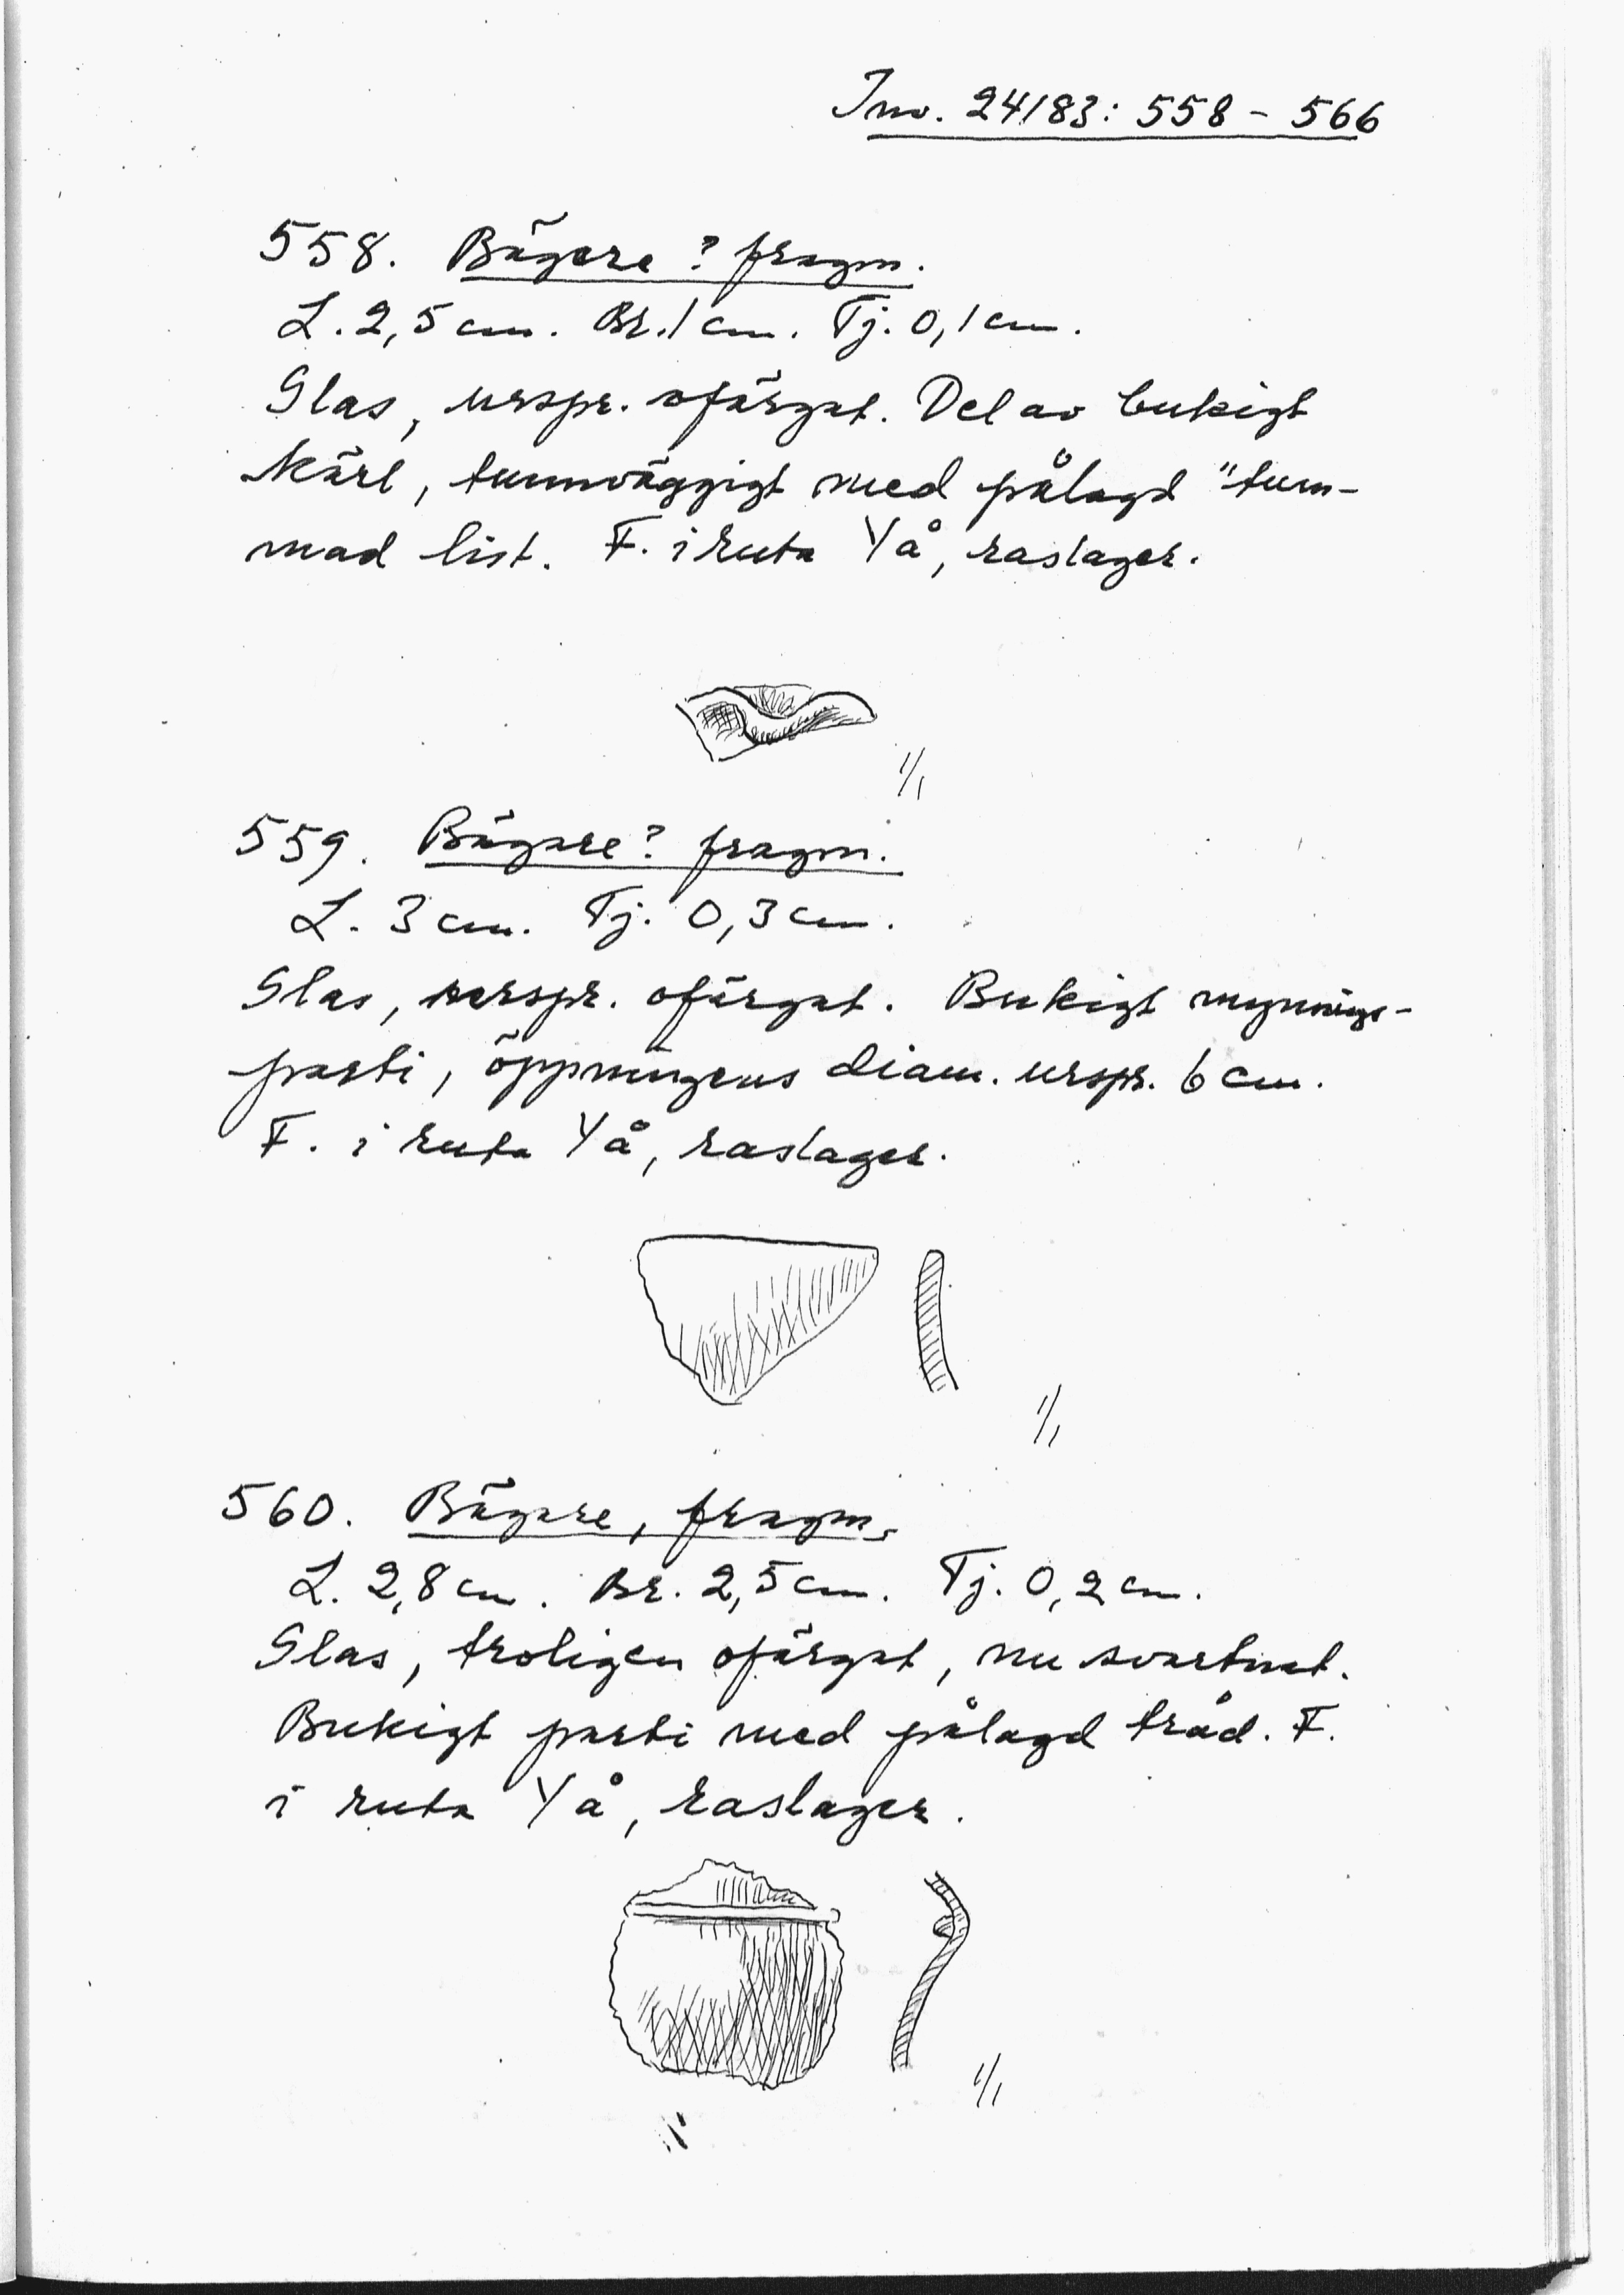 Inv. 24183: 558 - 566
558. Bägare? fragm.
L. 2,5 cm. Br. 1 cm. Tj. 0,1 cm.
Glas, urspr. ofärgat. Del av bukigt
kärl, tunnväggigt med pålagd "tum-
mad list. F. i ruta Yå, raslager.
1/1
559. Bägare? fragm.
L. 3 cm. Tj. 0,3 cm.
Glas, urspr. ofärgat. Bukigt mynnings-
parti, öppningens diam. urspr. 6 cm.
F. i ruta Yå, raslager.
1/1
560. Bägare, fragm.
L. 2,8 cm. Br. 2,5 cm. Tj. 0,2 cm.
Glas, troligen ofärgat, nu svartnat.
Bukigt parti med pålagd tråd. F.
i ruta Yå, raslager.
1/1